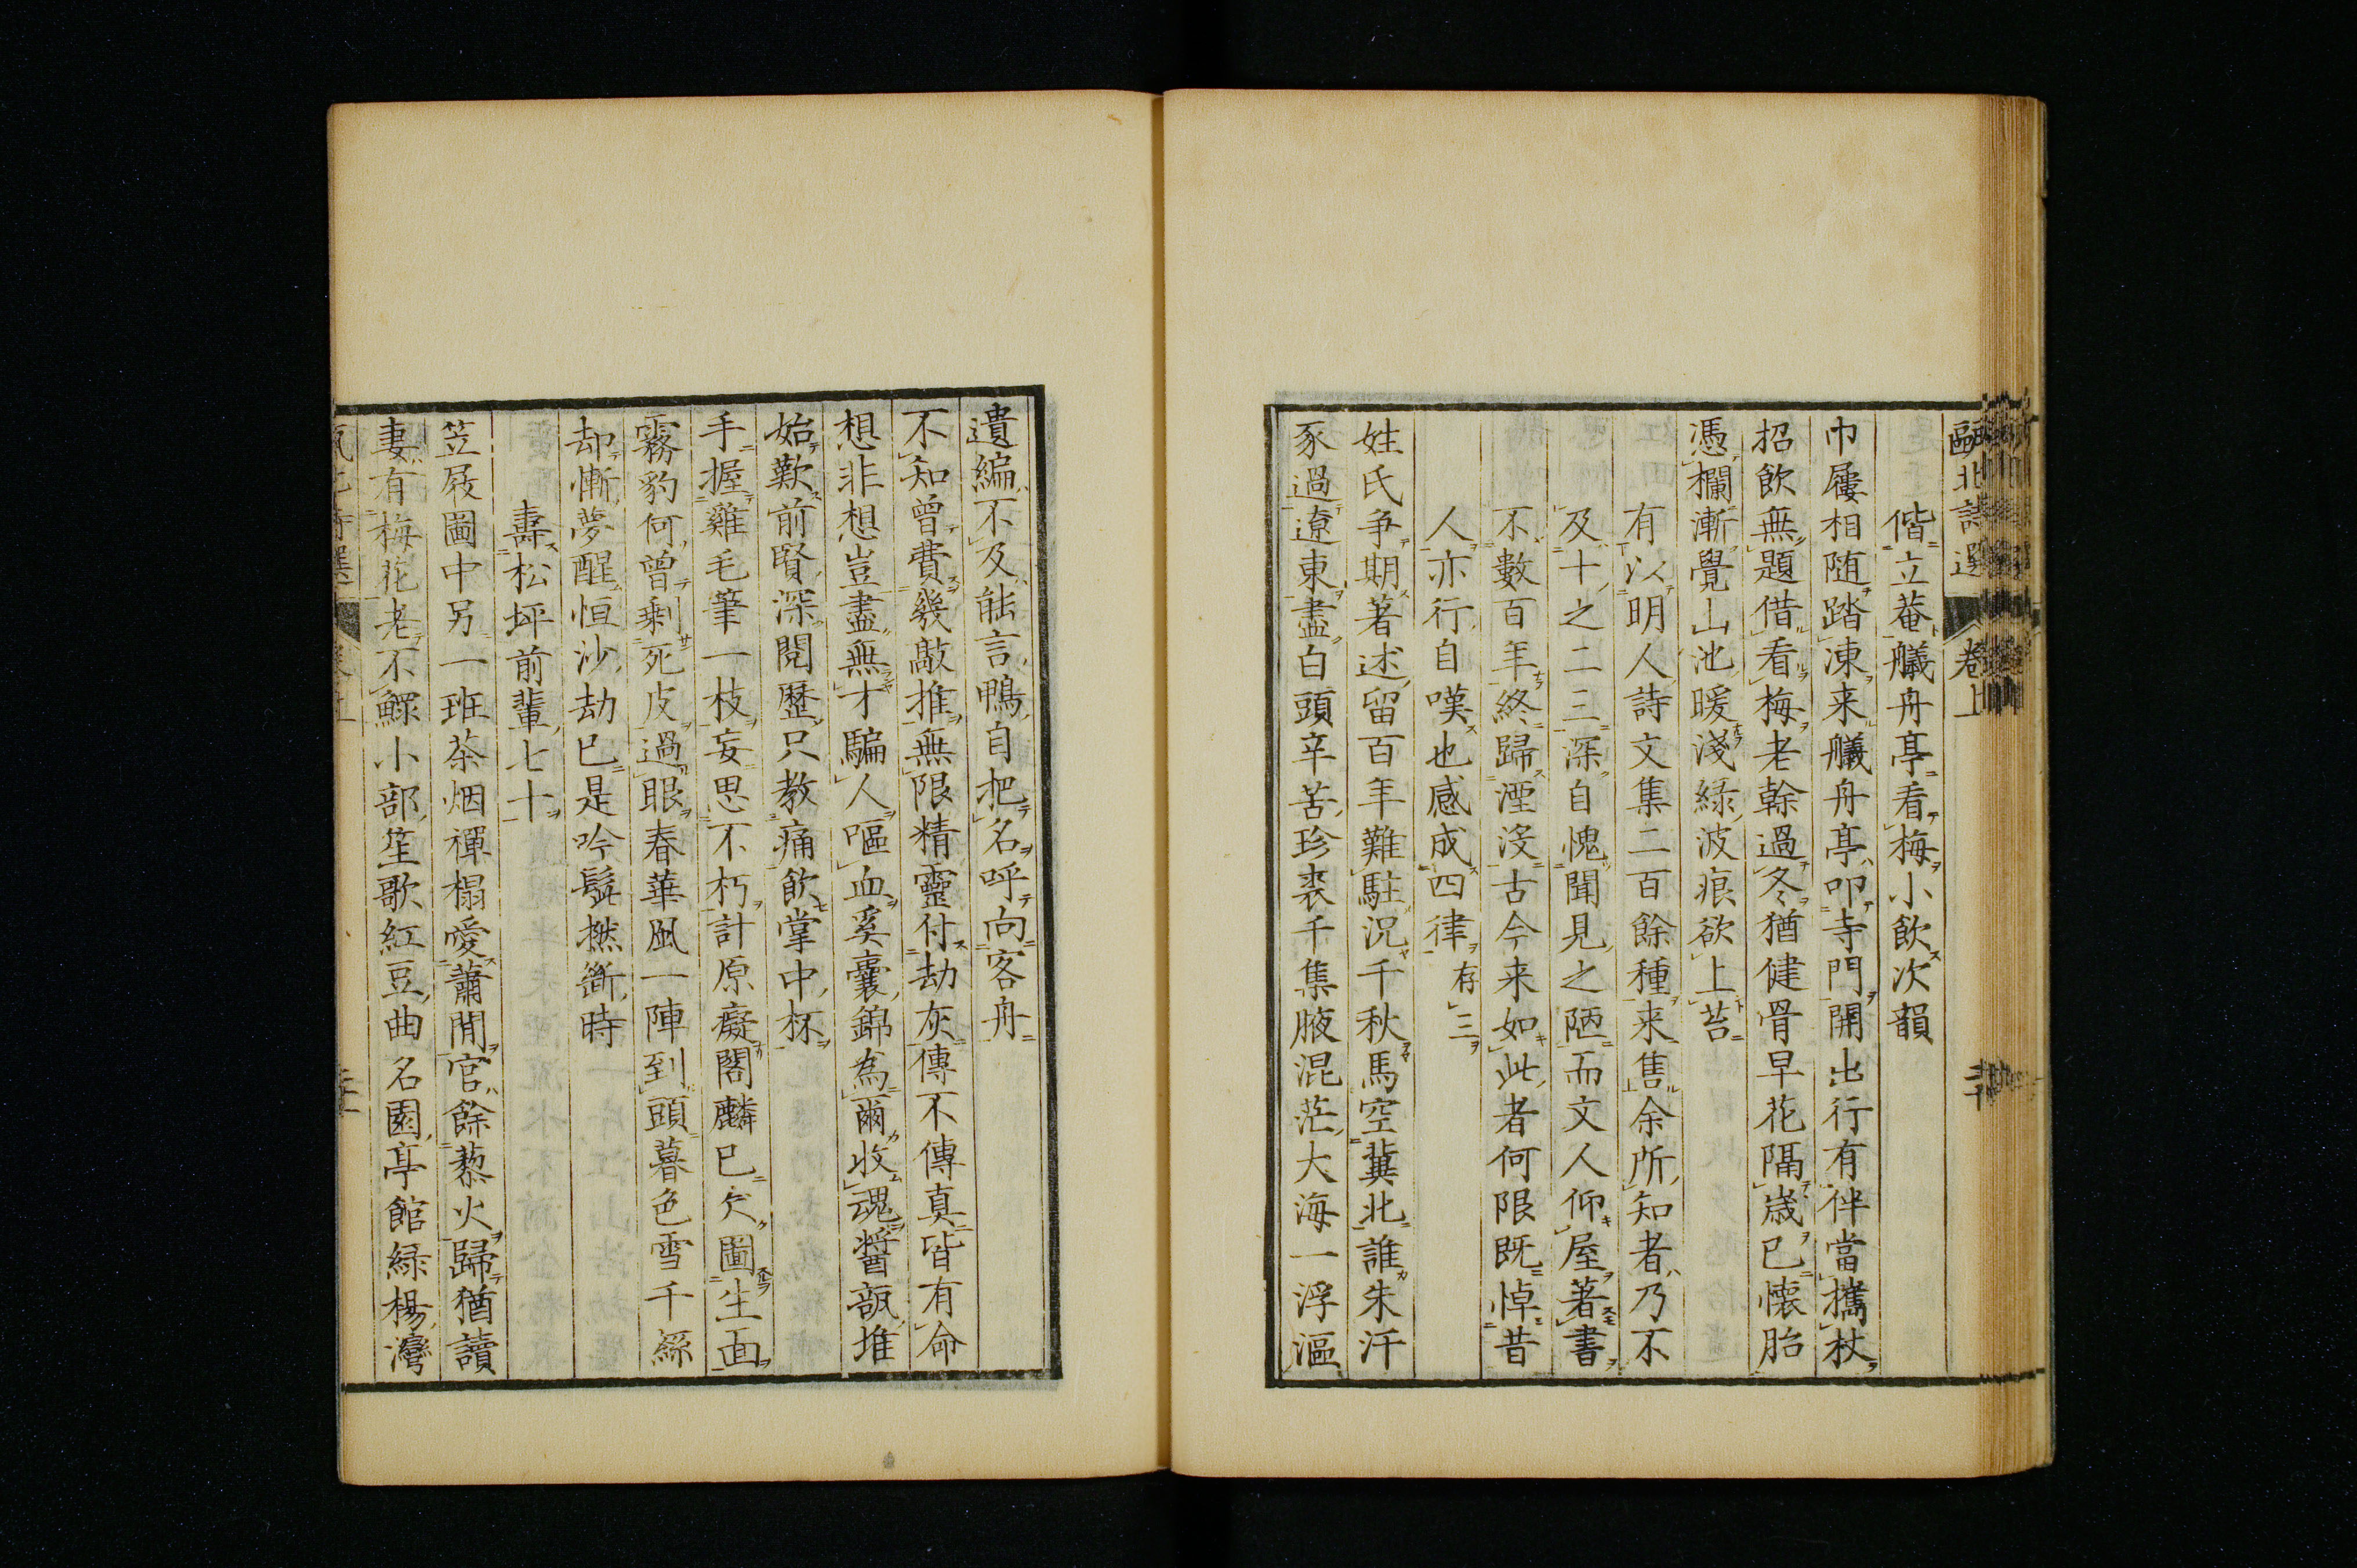 甌北詩選 卷上 二十
偕立菴艤舟亭看梅小飲次韻
巾屨相随踏凍来艤舟亭叩寺門開出行有伴當攜杖
招飲無題借看梅老榦過冬猶健骨早花隔歳已懐胎
憑欄漸覺山池暖淺緑波痕欲上苔
有以明人詩文集二百餘種来售余所知者乃不
及十之二三深自愧聞見之陋而文人仰屋著書
不數百年終歸湮没古今来如此者何限既悼昔
人亦行自嘆也感成四律存三
姓氏争期著述留百年難駐況千秋馬空冀北誰朱汗
豕過遼東盡白頭辛苦珍裘千集腋混茫大海一浮漚
遺編不及能言鴨自把名呼向客舟
不知曾費幾敲推無限精靈付劫灰傳不傳真皆有命
想非想豈盡無才騙人嘔血奚嚢錦為爾收魂醤瓿堆
始歎前賢深閲歴只教痛飲掌中杯
手握雞毛筆一枝妄思不朽計原癡閣麟已欠圖生面
霧豹何曾剰死皮過眼春華風一陣到頭暮色雪千絲
却慚夢醒恒沙劫已是吟髭撚斷時
壽松坪前輩七十
笠屐圖中另一班茶烟禪榻愛蕭閒官餘藜火歸猶讀
妻有梅花老不鰥小部笙歌紅豆曲名園亭館緑楊灣